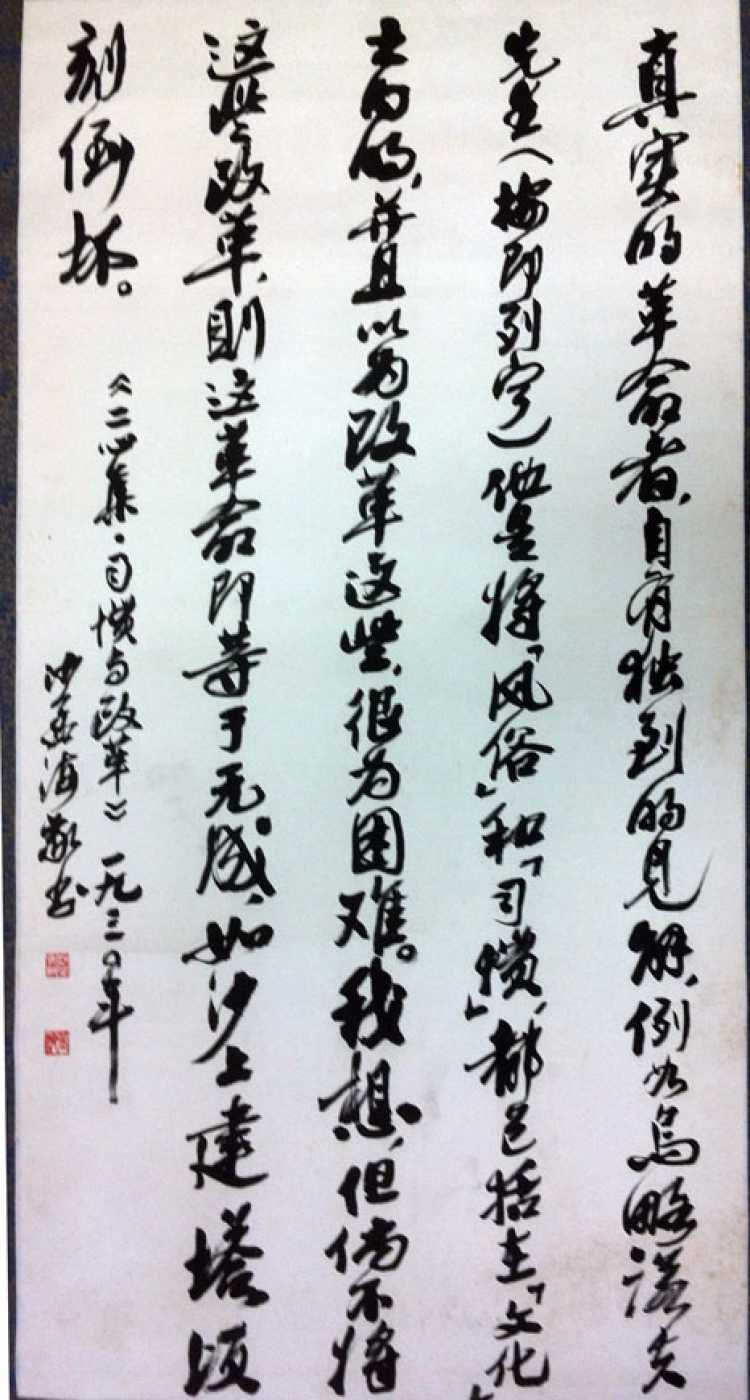 真实的革命者,自有独到的见解,例如乌略诺夫
先生(按即列宁)他是将「风俗」和「习惯」,都包括在「文化」
之内的,并且以为改革这些,很为困难。我想,但倘不将
这些改革,則这革命即等于无成,如沙上建塔,顷
刻倒坏。
《二心集·习惯与改革》一九三〇年
沙孟海敬书